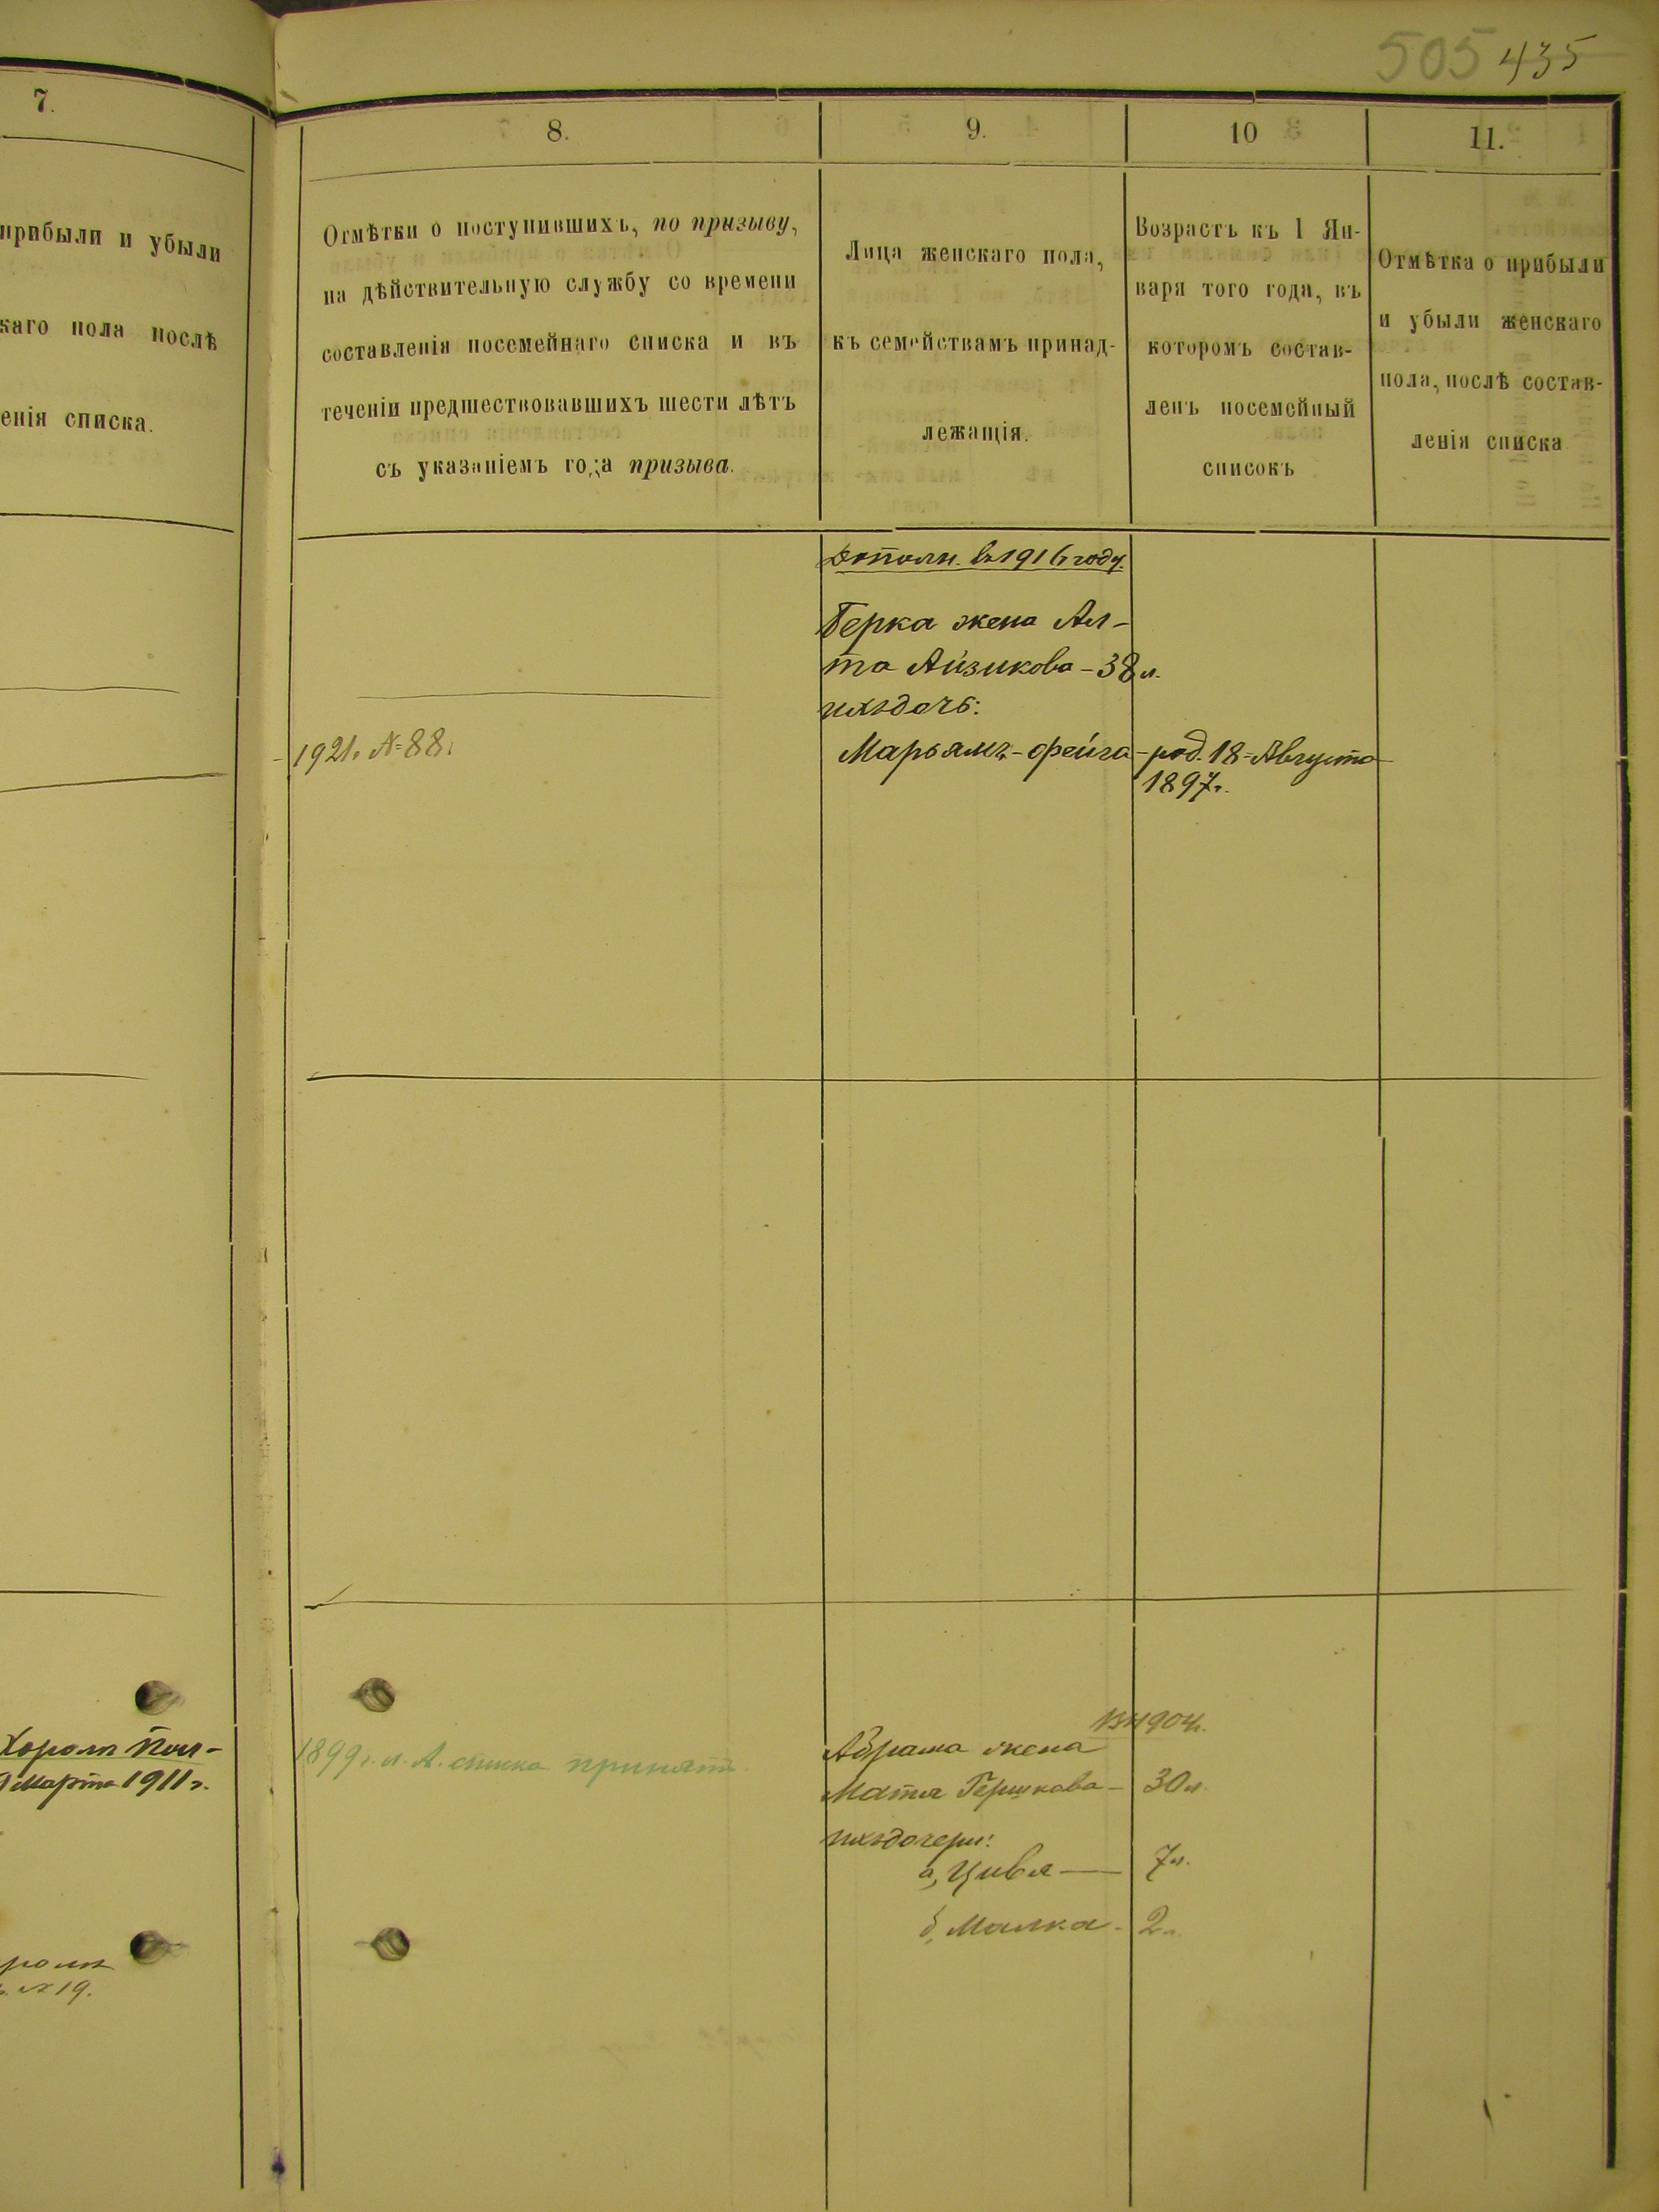 505 435
7.
прибыли и убыли
каго пола послѣ
енія списка.
Хороль Пол-
9 Марта 1911 г.
№ 19.
8.
Отмѣтки о поступившихъ, по призыву,
на дѣйствительную службу со времени
составленія посемейнаго списка и въ
теченіи предшествовавшихъ шести лѣтъ
съ указаніемъ года призыва.
1921. № 88.
1899 г. л. А. списка принятъ
9.
Лица женскаго пола,
къ семействамъ принад-
лежащія.
Дополн. въ 1916 году.
Берка жена Ал-
та Айзикова - 38 л.
ихъ дочь:
Марьямъ-Фейга - род. 18-Августа
1897 г.
въ 1904 г.
Абрама жена
Матля Гершкова - 30 л.
ихъ дочери:
а, Цивля — 7 л.
б, Малка - 2 л.
10
Возрастъ къ 1 Ян-
варя того года, въ
которомъ состав-
ленъ посемейный
списокъ
11.
Отмѣтка о прибыли
и убыли женскаго
пола, послѣ состав-
ленія списка